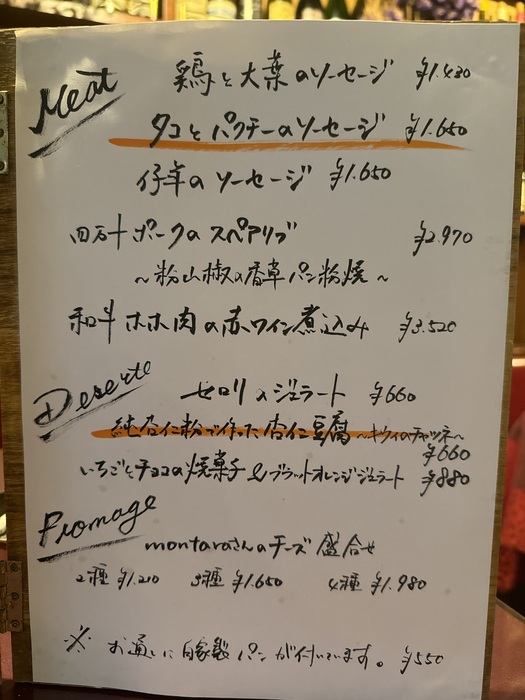 Meat
鶏と大葉のソーセージ ¥1.430
タコとパクチーのソーセージ ¥1.650
仔羊のソーセージ ¥1.650
四万十ポークのスペアリブ ¥2.970
～粉山椒の香草パン粉焼～
和牛ホホ肉の赤ワイン煮込み ¥3.520
Deserte
セロリのジェラート ¥660
純杏仁粉で作った杏仁豆腐～キウイのチャツネ～
¥660
いちごとチョコの焼菓子&ブラッドオレンジジェラート ¥880
Fromage
montaraさんのチーズ盛合せ
2種 ¥1.210 3種 ¥1.650 4種 ¥1.980
※ お通しに自家製パンが付いています。 ¥550